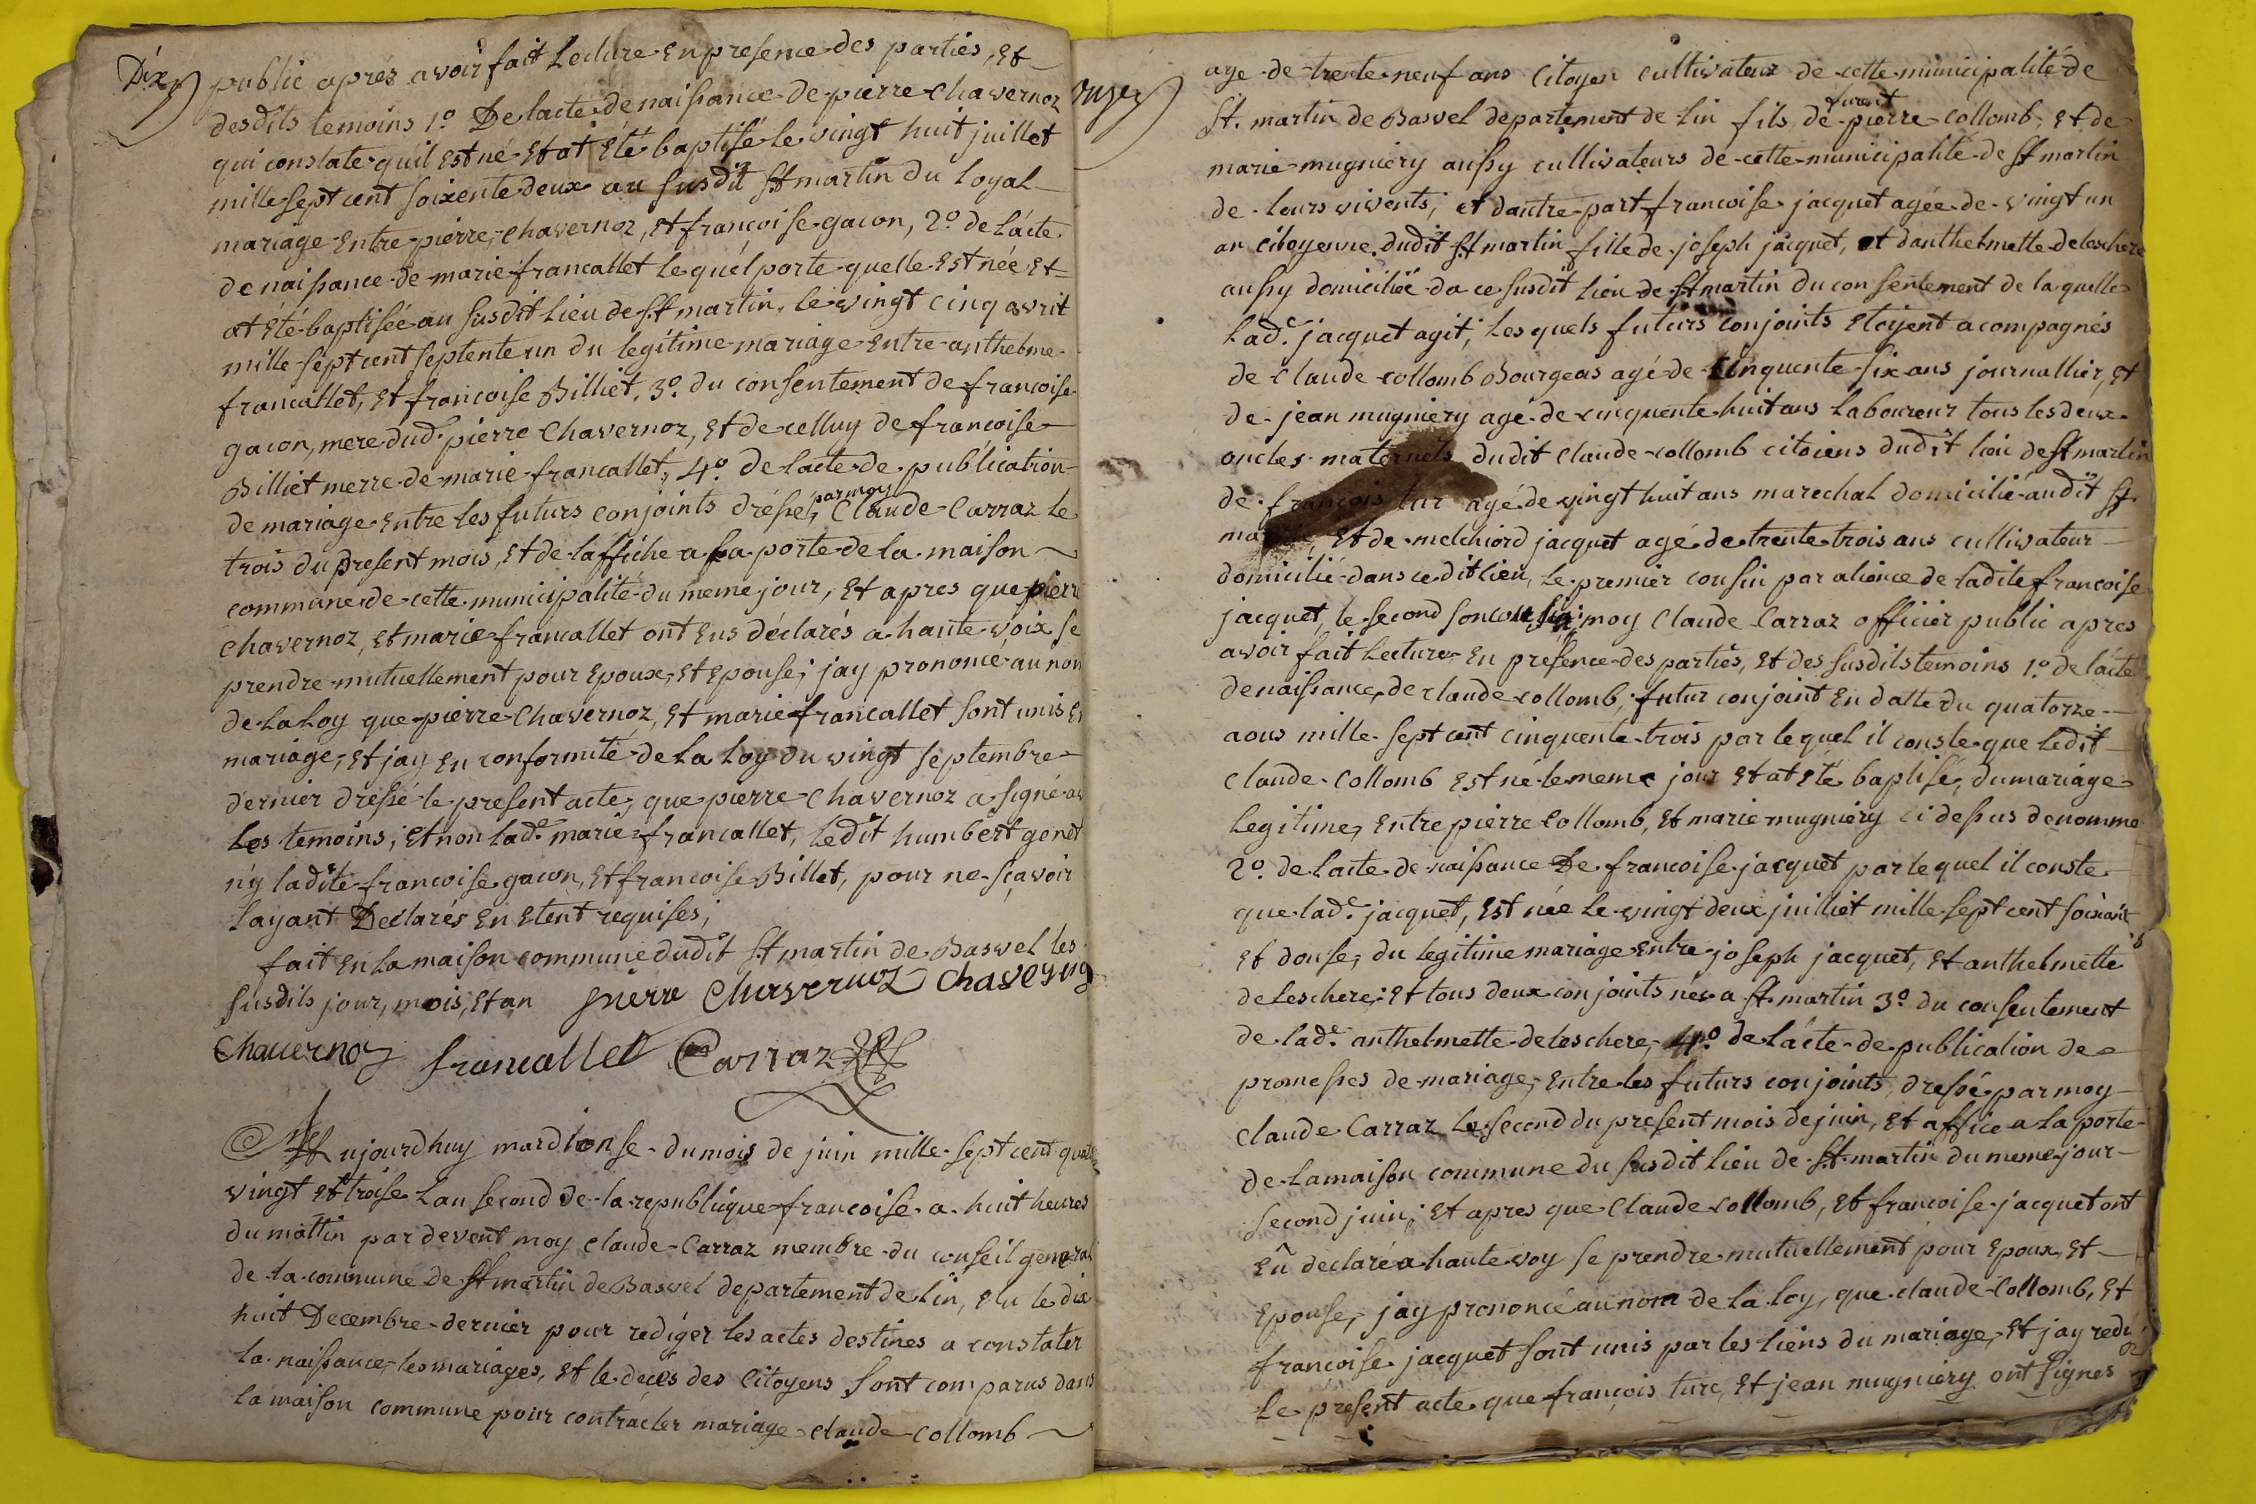 Dix
public aprés avoir fait Lecture En presence des parties, Et
desdits temoins 1º. De lacte de naissance de pierre Chavernoz
qui constate qu'il Est né Et at Eté baptisé le vingt huit juillet
mille sept cent soixente deux au susdit St martin du loyal
mariage Entre pierre Chavernoz, Et françoise gacon, 2º. de lácte
de naissance de marie francallet le quél porte quelle Est née Et
at Eté baptisée au susdit lieu de St martin, le vingt cinq avrit
mille sept cent septente un du legitime mariage Entre anthelme
francallet, Et françoise Billiet, 3º. du consentement de francoise
gacon, mere dud. pierre Chavernoz, Et de celluy de francoise
Billiet merre de marie francallet, 4º. de lacte de públication
de mariage Entre les futurs conjoints dréssé, par moy Claude Carraz le
trois du present mois, Et de láffiche a la porte de la maison
commune de cette municipalité du meme jour, Et apres que pierre
Chavernoz, Et marie francallet ont Eus déclarés a haute voix se
prendre mutuellement pour Epoux, Et Epouse; jay prononcé au nom
de la Loy que pierre Chavernoz, Et marie francallet sont unis En
mariage, Et jay En conformité de la Loy du vingt septembre
dernier dressé le present acte, que pierre Chavernoz a signé av
Les temoins; Et non lad.e marie francallet, ledit humbert genet
n'y ladite francoise gacon, Et francoise Billet, pour ne sçavoir
layant Déclarés En Etent requises;
fait En la maison commune dudit St martin de Bavel les
susdits jour, mois, Et an pierre Chavernoz Chaveyng
Chavernoz francallet Carraz
Aujourdhuy mardi onse du mois de juin mille sept cent quatre
vingt Et treise Lan second de la republique francoise a huit heures
du mattin par devent moy Claude Carraz membre du conseil general
de la commune de St martin de Bavel departement de Lin, Elu le dix
huit Decembre dernier pour rediger les actes destines a constater
la naissance, les mariages, Et le décés des Citoyens sont comparus dans
la maison commune pour contracter mariage Claude Collomb
onze
age de trente neuf ans Citoyen cultivateur de cette municipalité de
St. martin de Bavel departement de Lin fils de furent pierre Collomb, Et de
marie mugniery aussy cultivateurs de cette municipalité de St martin
de leurs vivents; et dautre part francoise jacquet agée de vingt un
an Citoyenne dudit St martin fille de joseph jacquet, et danthelmette deleschere
aussy domiciliée da ce susdit lieu de St martin du consentement de laquelle
lad.e jacquet agit; les quels futurs conjoints Etoyent acompagnés
de Claude Collomb Bourgeas agé de Cinquente six ans journallier, Et
de jean mugniery age de cinquente huit ans laboureur tous les deux
oncles maternels dudit Claude Collomb citoiens dudit lieu de St martin
de françois tur agé de vingt huit ans marechal domicilié audit St.
martin, Et de melchiord jacquet agé de trente trois ans cultivateur
domicilié dans ce dit lieu, le premier cousin par aliance de ladite francoise
jacquet, le second son cousin; moy Claude Carraz officier public apres
avoir fait Lecture En presence des parties, Et des susdits temoins 1º. de lácte
de naissance de Claude Collomb, futur conjoint En datte du quatorze
aous mille sept cent cinquente trois par le quel il conste que ledit
Claude Collomb Est né le meme jour Et at Eté baptisé, du mariage
Legitime, Entre pierre Collomb, Et marie mugniery ci dessus denomme
2º. de lacte de naissance De francoise jacquet par le quel il conste
que lad.e jacquet, Est née le vingt deux juilliet mille sept cent soixante
Et douse, du legitime mariage Entre joseph jacquet, Et anthelmette
deleschere; Et tous deux conjoints nés a St martin 3º du consentement
de lad.e anthelmette deleschere, 4º. de lácte de publication de
promesses de mariage, Entre les futurs conjoints, dressé par moy
Claude Carraz le second du present mois de juin, Et affice a la porte
de la maison commune du susdit lieu de St martin du meme jour
second juin; Et apres que Claude Collomb, Et francoise jacquet ont
Eû declaré a haute voy se prendre mutuellement pour Epoux, Et
Epouse, jay prononcé au nom de la loy, que claude Collomb, Et
francoise jacquet sont unis par les liens du mariage, Et jay redi
le present acte que françois turc, Et jean mugniery ont signes